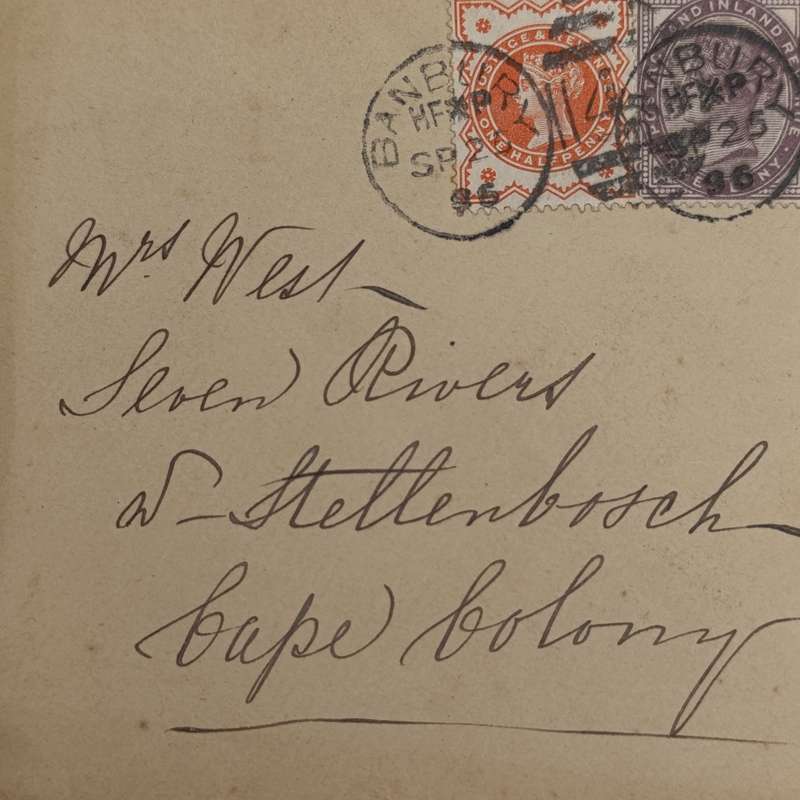 BANBURY
HF✱P
SP 2
96
POSTAGE & REVENUE
ONE HALFPENNY
BANBURY
HF✱P
SP 25
96
POSTAGE AND INLAND REVENUE
PENNY
Mrs West
Seven Rivers
Stellenbosch
Cape Colony